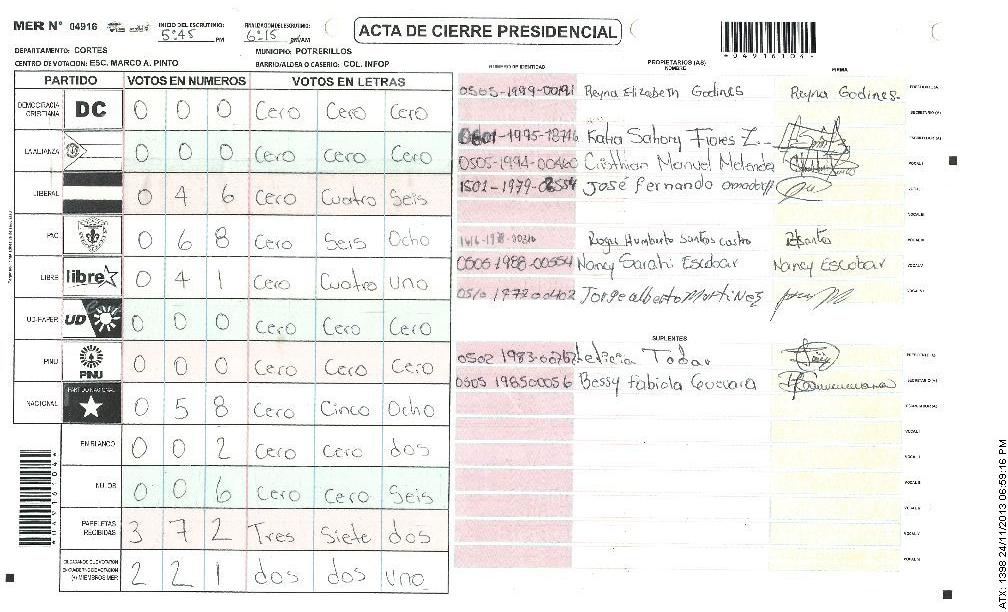 MER N° 04916 INICIO DEL ESCRUTINIO: 5:45 PM FINALIZACION DEL ESCRUTINIO: 6:15 PM/AM
ACTA DE CIERRE PRESIDENCIAL
*04916104*
DEPARTAMENTO: CORTES MUNICIPIO: POTRERILLOS
CENTRO DE VOTACION: ESC. MARCO A. PINTO BARRIO/ALDEA O CASERIO: COL. INFOP
PARTIDO VOTOS EN NUMEROS VOTOS EN LETRAS
DEMOCRACIA CRISTIANA DC 0 0 0 Cero Cero Cero
LA ALIANZA 0 0 0 Cero Cero Cero
LIBERAL 0 4 6 Cero Cuatro Seis
PAC 0 6 8 Cero Seis Ocho
LIBRE libre 0 4 1 Cero Cuatro uno
UD-FAPER UD 0 0 0 Cero Cero Cero
PINU PINU 0 0 0 Cero Cero Cero
NACIONAL PARTIDO NACIONAL 0 5 8 Cero Cinco Ocho
EN BLANCO 0 0 2 Cero Cero dos
NULOS 0 0 6 Cero Cero Seis
PAPELETAS RECIBIDAS 3 7 2 Tres Siete dos
(+) MIEMBROS MER 2 2 1 dos dos uno
NUMERO DE IDENTIDAD PROPIETARIOS (AS) NOMBRE FIRMA
0505-1999-00191 Reyna Elizabeth Godines Reyna Godines. PRESIDENTE (A)
SECRETARIO (A)
0501-1995-13716 Katia Sahory Flores Z. ESCRUTADOR (A)
0505-1994-00460 Cristhian Manuel Melendez VOCAL I
1501-1979-03554 José fernando amador VOCAL II
VOCAL III
1416-1978-00310 Roger Humberto Santos Castro RSantos VOCAL IV
0505-1988-00554 Nancy Sarahi Escobar Nancy Escobar VOCAL V
0510 1972 00402 Jorge alberto Martinez VOCAL VI
SUPLENTES
0502 1983-00767 Leticia Tobar PRESIDENTE (A)
0505 1985 00056 Bessy Fabiola Guevara SECRETARIO (A)
ESCRUTADOR (A)
VOCAL I
VOCAL II
VOCAL III
VOCAL IV
VOCAL V
VOCAL VI
*04916104*
ATX: 1398 24/11/2013 06:59:16 PM